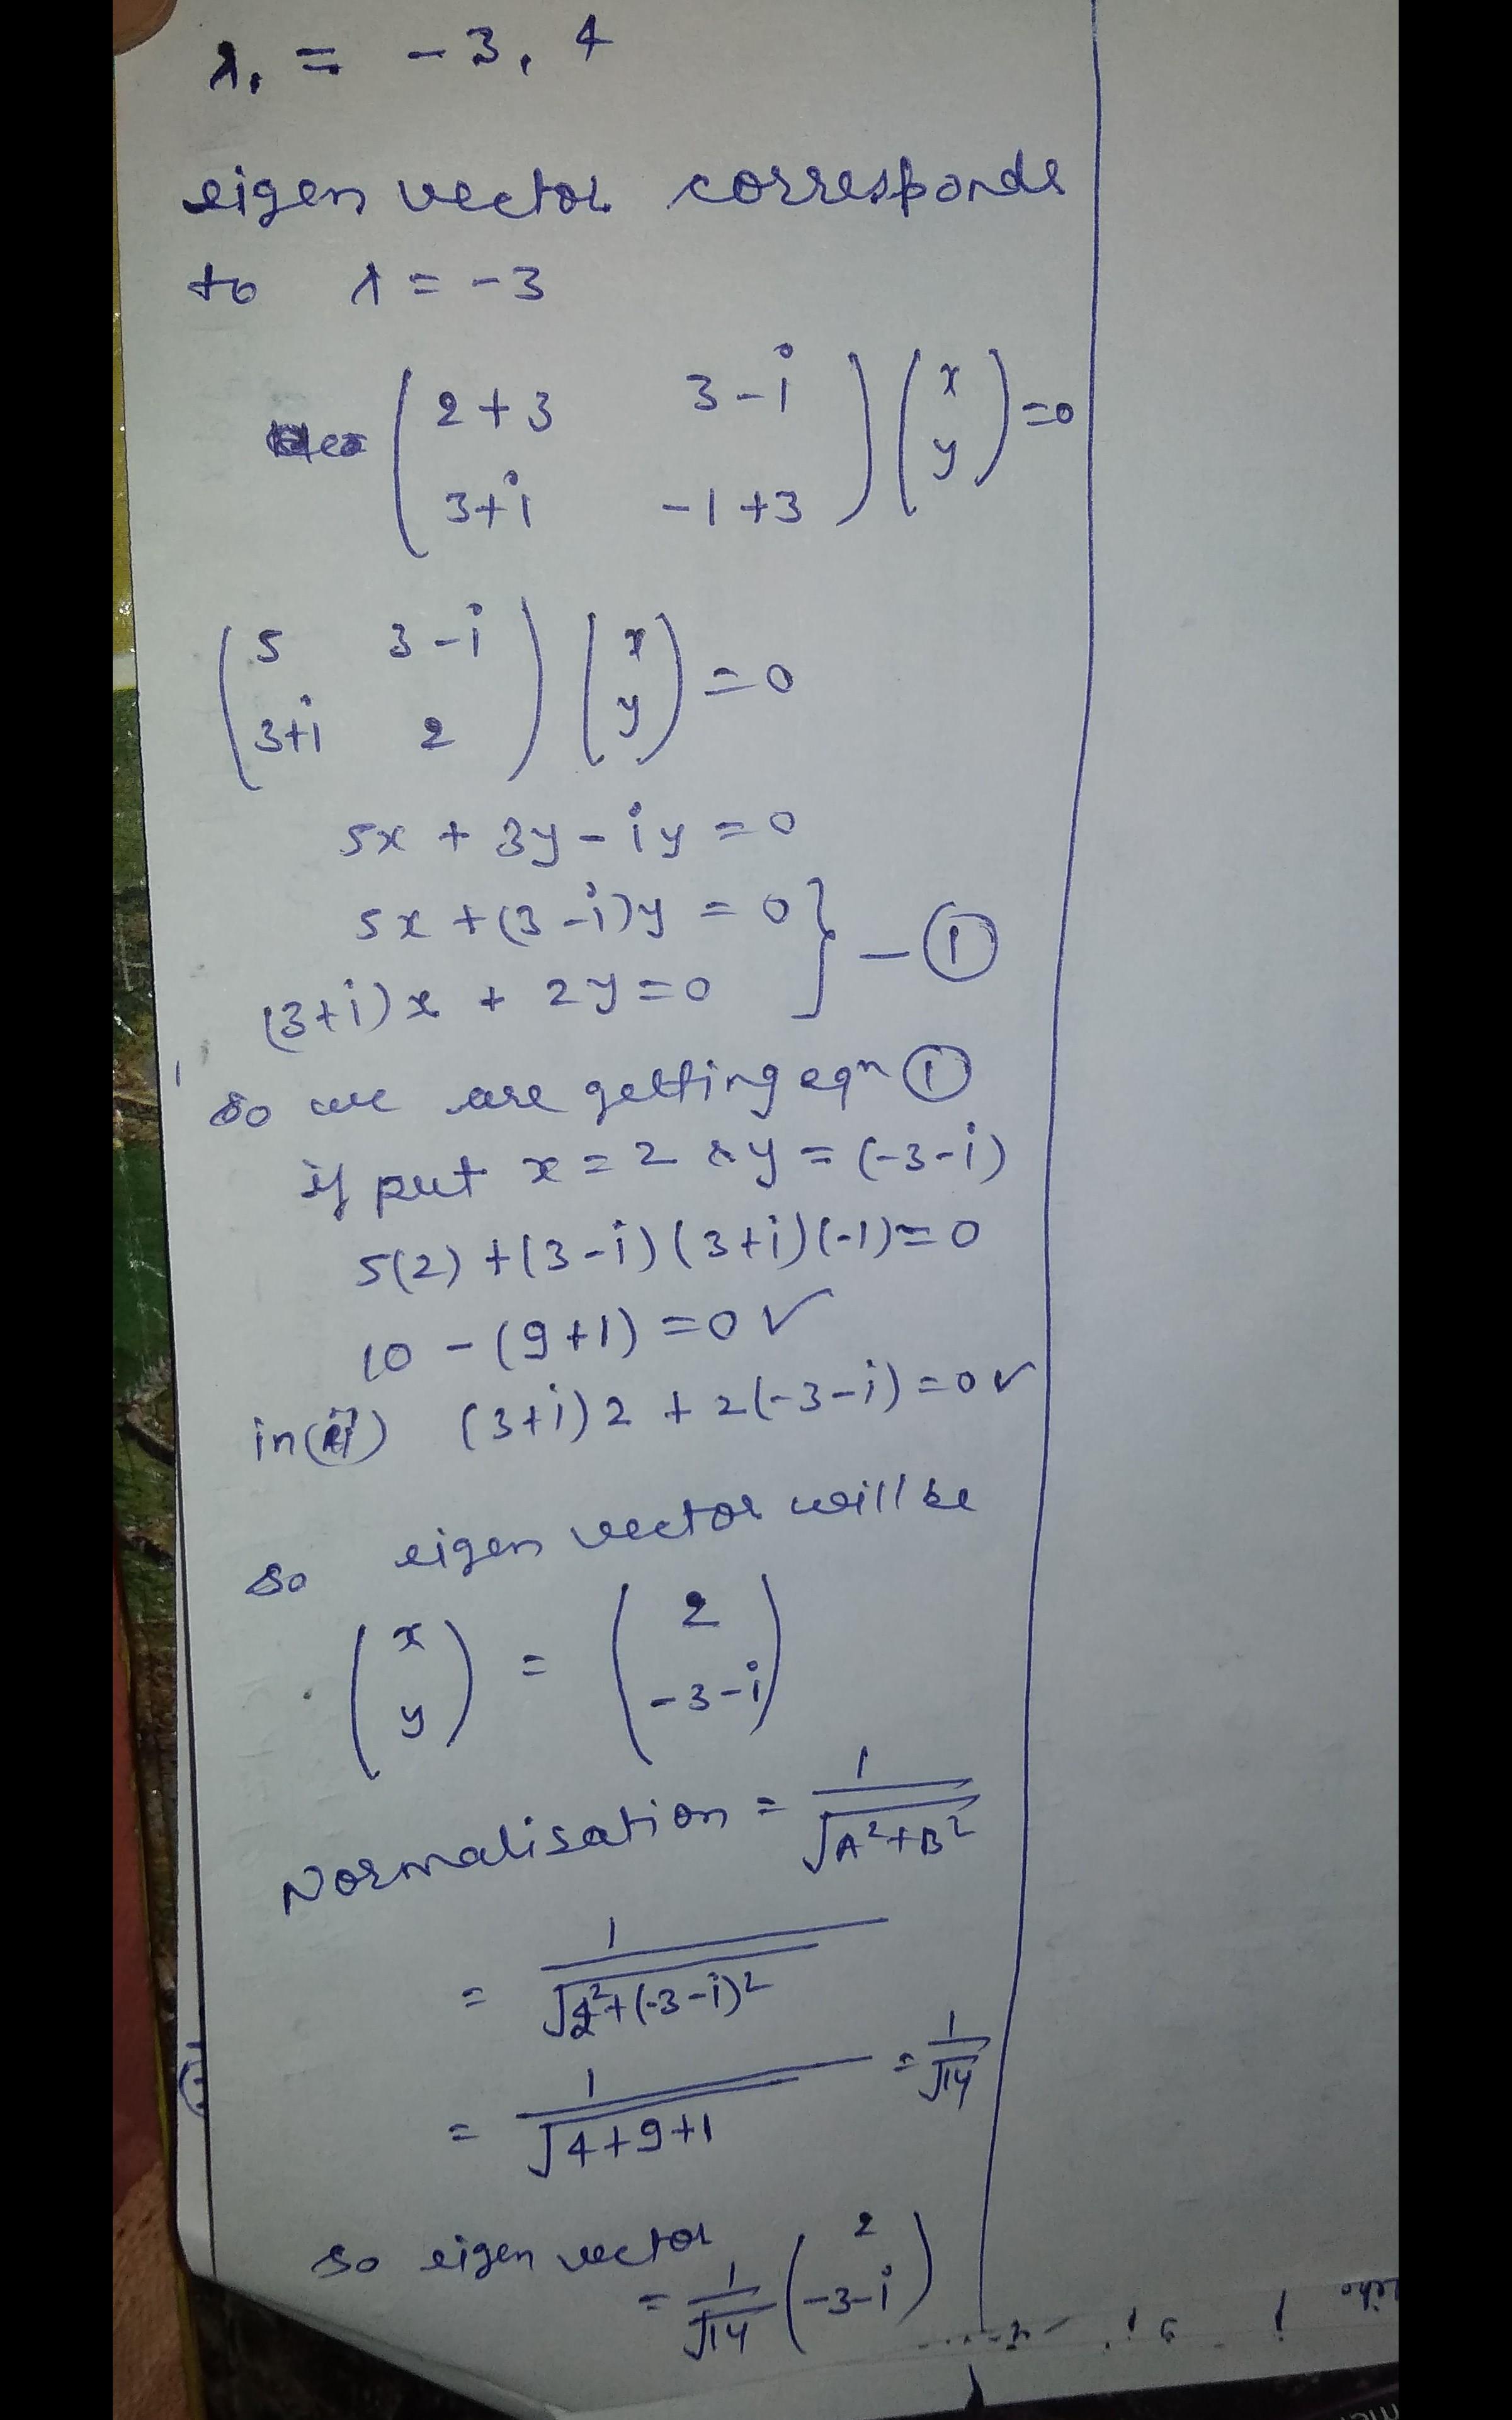 λ, = -3, 4
eigen vector corresponds
to λ = -3
( 2+3 3-i ) ( x ) =0
( 3+i -1+3 ) ( y )
( 5 3-i ) ( x ) =0
( 3+i 2 ) ( y )
5x + 3y - iy = 0
5x + (3-i)y = 0 } - ①
(3+i)x + 2y = 0
so we are getting eqn ①
if put x = 2 & y = (-3-i)
5(2) + (3-i)(3+i)(-1) = 0
10 - (9+1) = 0 ✓
in (ii) (3+i)2 + 2(-3-i) = 0 ✓
so eigen vector will be
( x ) = ( 2 )
( y ) ( -3-i )
Normalisation = 1/√A²+B²
= 1/√2²+(-3-i)²
= 1/√4+9+1 = 1/√14
so eigen vector
= 1/√14 ( 2 )
( -3-i )